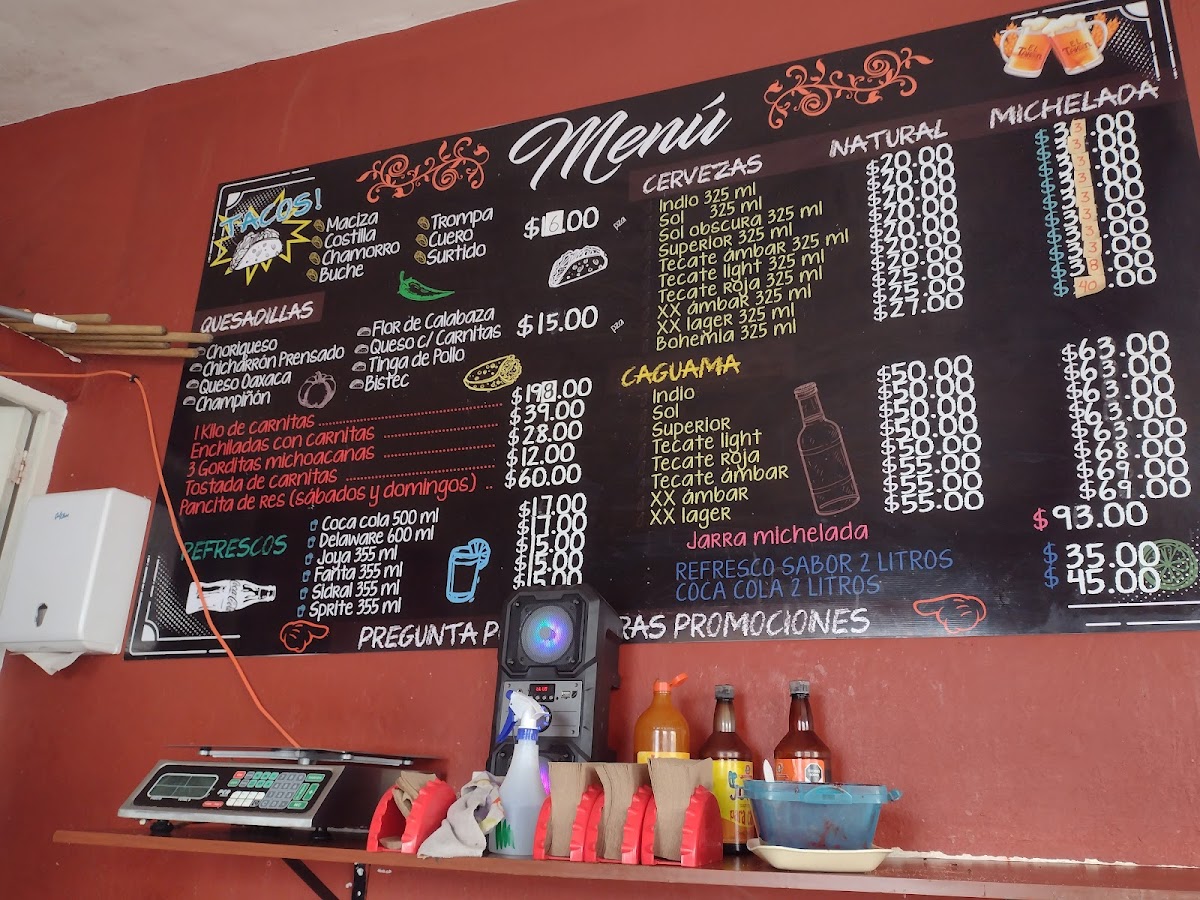 Menú
TACOS!
Maciza
Costilla
Chamorro
Buche
Trompa
Cuero
Surtido
$16.00 pza
QUESADILLAS
Choriqueso
Chicharrón Prensado
Queso Oaxaca
Champiñón
Flor de Calabaza
Queso c/ Carnitas
Tinga de Pollo
Bistec
$15.00 pza
1 Kilo de carnitas $198.00
Enchiladas con carnitas $39.00
3 Gorditas michoacanas $28.00
Tostada de carnitas $12.00
Pancita de Res (sábados y domingos) .. $60.00
REFRESCOS
Coca cola 500 ml $17.00
Delaware 600 ml $17.00
Joya 355 ml $15.00
Fanta 355 ml $15.00
Sidral 355 ml
Sprite 355 ml
CERVEZAS NATURAL MICHELADA
Indio 325 ml $20.00
Sol 325 ml $20.00
Sol obscura 325 ml $20.00
Superior 325 ml $20.00
Tecate ámbar 325 ml
Tecate light 325 ml
Tecate roja 325 ml
XX ámbar 325 ml $25.00
XX lager 325 ml $25.00
Bohemia 325 ml $27.00
CAGUAMA
Indio $50.00 $63.00
Sol $50.00 $63.00
Superior $50.00 $63.00
Tecate light $50.00 $63.00
Tecate Roja
Tecate ámbar $55.00 $68.00
XX ámbar $55.00 $69.00
XX lager $55.00 $69.00
Jarra michelada $93.00
REFRESCO SABOR 2 LITROS $35.00
COCA COLA 2 LITROS $45.00
PREGUNTA RAS PROMOCIONES